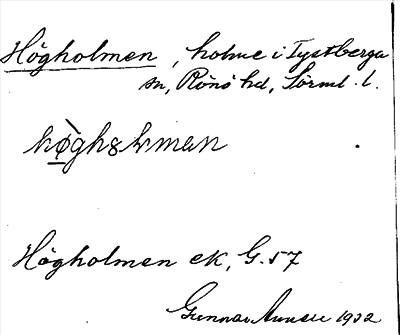 Högholmen, holme i Tystberga
sn, Rönö hd, Sörml. l.
Högholmen ek, G.57
Gunnar 1932